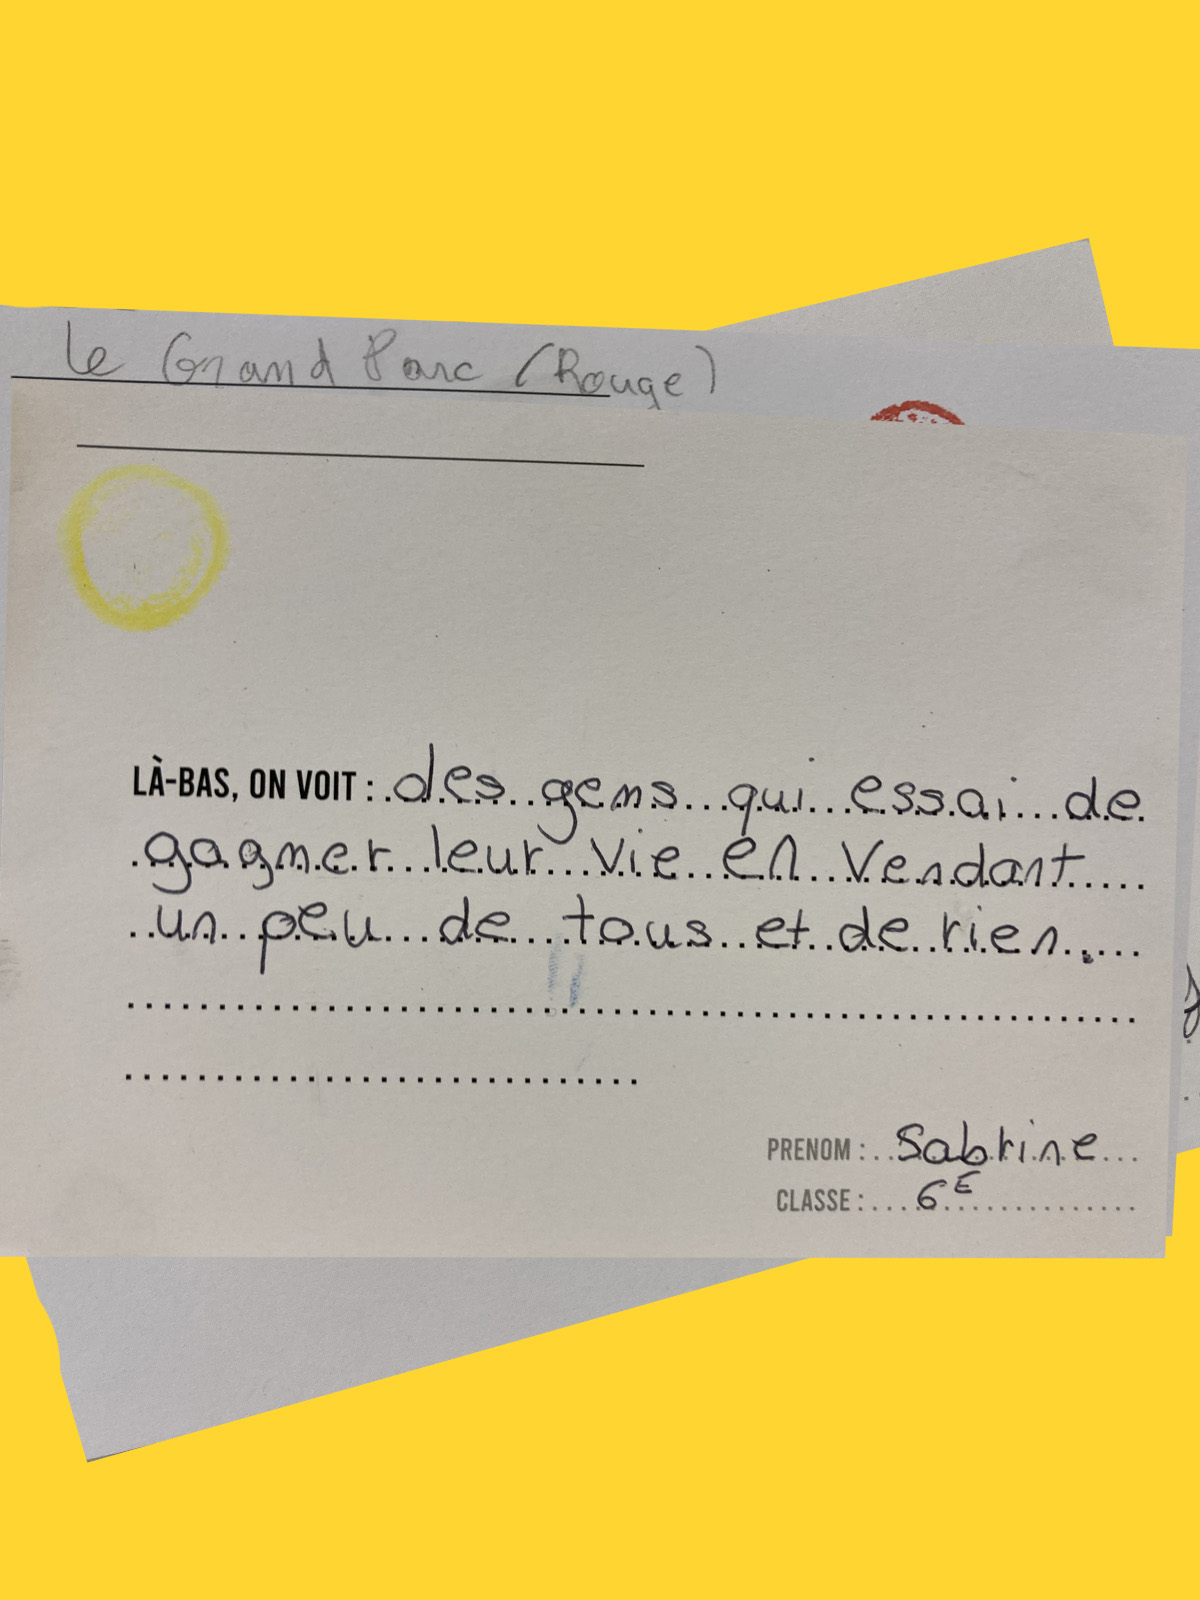 Le Grand Parc (Rouge)
LÀ-BAS, ON VOIT : des gens qui essai de
gagner leur vie en vendant
un peu de tous et de rien.
PRENOM : Sabrine
CLASSE : 6E